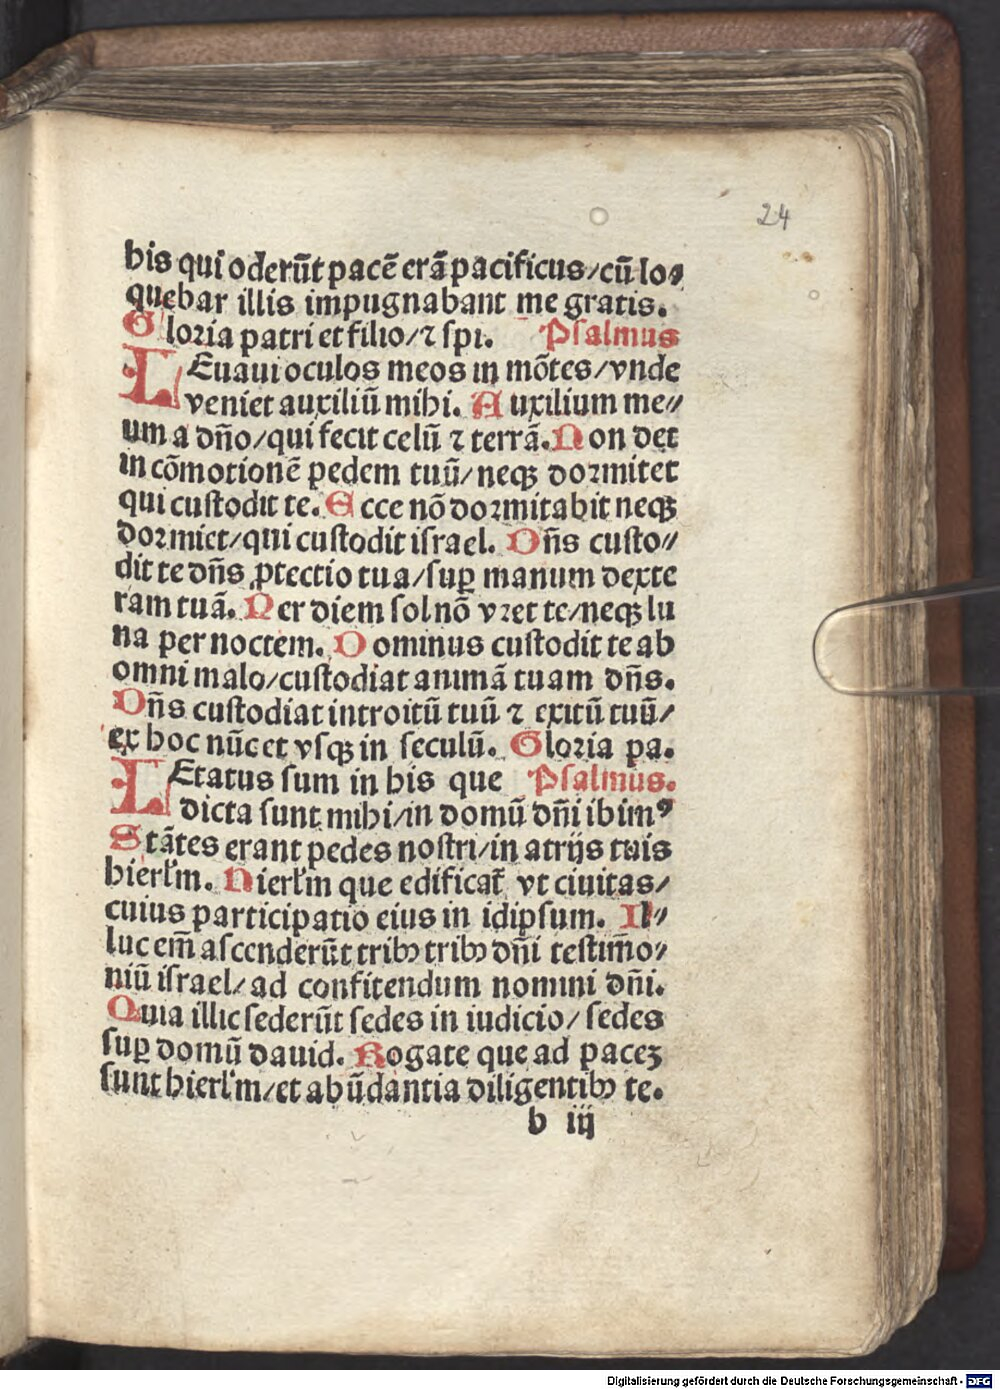 24
his qui oderūt pacē erā pacificus/cū lo⸗
quebar illis impugnabant me gratis.
Gloria patri et filio/⁊ spi. Psalmus
LEuaui oculos meos in mōtes/vnde
veniet auxiliū mihi. Auxilium me⸗
um a dn̄o/qui fecit celū ⁊ terrā. Non det
in cōmotionē pedem tuū/neqꝫ dormitet
qui custodit te. Ecce nō dormitabit neqꝫ
dormiet/qui custodit israel. Dn̄s custo⸗
dit te dn̄s ꝓtectio tua/suꝑ manum dexte
ram tuā. Per diem sol nō vret te/neqꝫ lu
na per noctem. Dominus custodit te ab
omni malo/custodiat animā tuam dn̄s.
Dn̄s custodiat introitū tuū ⁊ exitū tuū/
ex hoc nūc et vsqꝫ in seculū. Gloria pa.
LEtatus sum in his que Psalmus.
dicta sunt mihi/in domū dn̄i ibimꝰ
Stātes erant pedes nostri/in atrijs tuis
hierl'm. Hierl'm que edificat᷑ vt ciuitas/
cuius participatio eius in idipsum. Il⸗
luc em̄ ascenderūt tribꝫ tribꝫ dn̄i testimo⸗
niū israel/ad confitendum nomini dn̄i.
Quia illic sederūt sedes in iudicio/sedes
suꝑ domū dauid. Rogate que ad paceꝫ
sunt hierl'm/et abūdantia diligentibꝫ te.
b iij
Digitalisierung gefördert durch die Deutsche Forschungsgemeinschaft - DFG